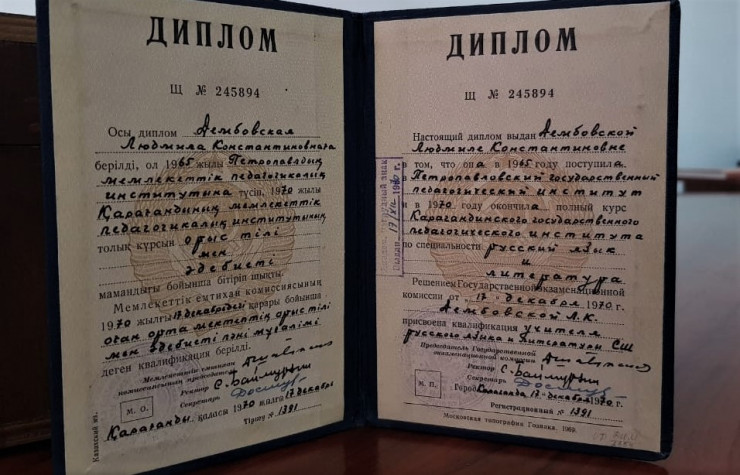 ДИПЛОМ
Щ № 245894
Осы диплом Дембовская
Людмила Константиновнаға
берілді, ол 1965 жылы Петропавлдың
мемлекеттік педагогикалық
институтына түсіп, 1970 жылы
Қарағандының мемлекеттік
педагогикалық институтының
толық курсын орыс тілі
мен
әдебиеті
мамандығы бойынша бітіріп шықты.
Мемлекеттік емтихан комиссиясының
1970 жылғы 17 декабрдегі қарары бойынша
оған орта мектептің орыс тілі
мен әдебиеті пәні мұғалімі
деген квалификация берілді.
Мемлекеттік емтихан
комиссиясының председателі
Ректор
Секретарь
М. О.
Қарағанды, қаласы 1970 жылғы 17 декабрь
Тіркеу № 1391
Казахский яз.
ДИПЛОМ
Щ № 245894
Настоящий диплом выдан Дембовской
Людмиле Константиновне
в том, что она в 1965 году поступила
в Петропавловский государственный
педагогический институт
и в 1970 году окончила полный курс
Карагандинского государственного
педагогического института
по специальности русский язык
и
литература
Решением Государственной экзаменационной
комиссии от „17" декабря 1970 г.
Дембовской Л.К.
присвоена квалификация учителя
русского языка и литературы СШ
Председатель Государственной
экзаменационной комиссии
Ректор
Секретарь
М. П.
Город Караганда 17 декабря 1970 г.
Регистрационный № 1391
Московская типография Гознака. 1969.
нагрудный знак